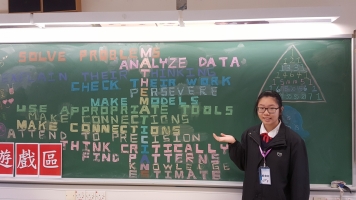 SOLVE PROBLEMS
ANALYZE DATA
THEIR THINKING
CHECK THEIR WORK
PERSEVERE
MAKE MODELS
USE APPROPRIATE TOOLS
MAKE CONNECTIONS
MAKE CONNECTIONS
ATTEND TO PRECISION
THINK CRITICALLY
FIND PATTERNS
KNOWLEDGE
ESTIMATE
遊戲區